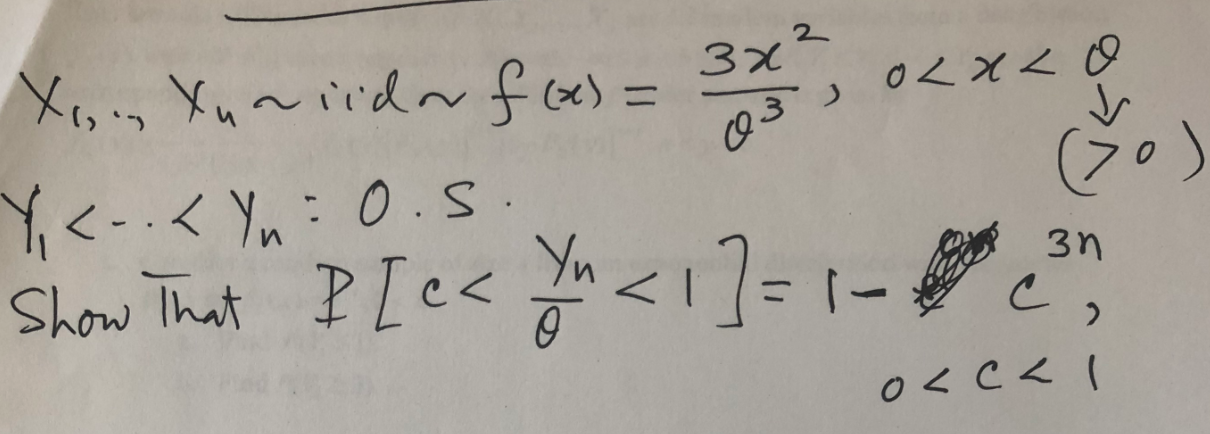 X₁, .., Xₙ ~ iid ~ f(x) = 3x²/θ³, 0 < x < θ
↓
(>0)
Y₁ < -- < Yₙ : O.S.
Show That P[c < Yₙ/θ < 1] = 1 - c³ⁿ,
0 < c < 1